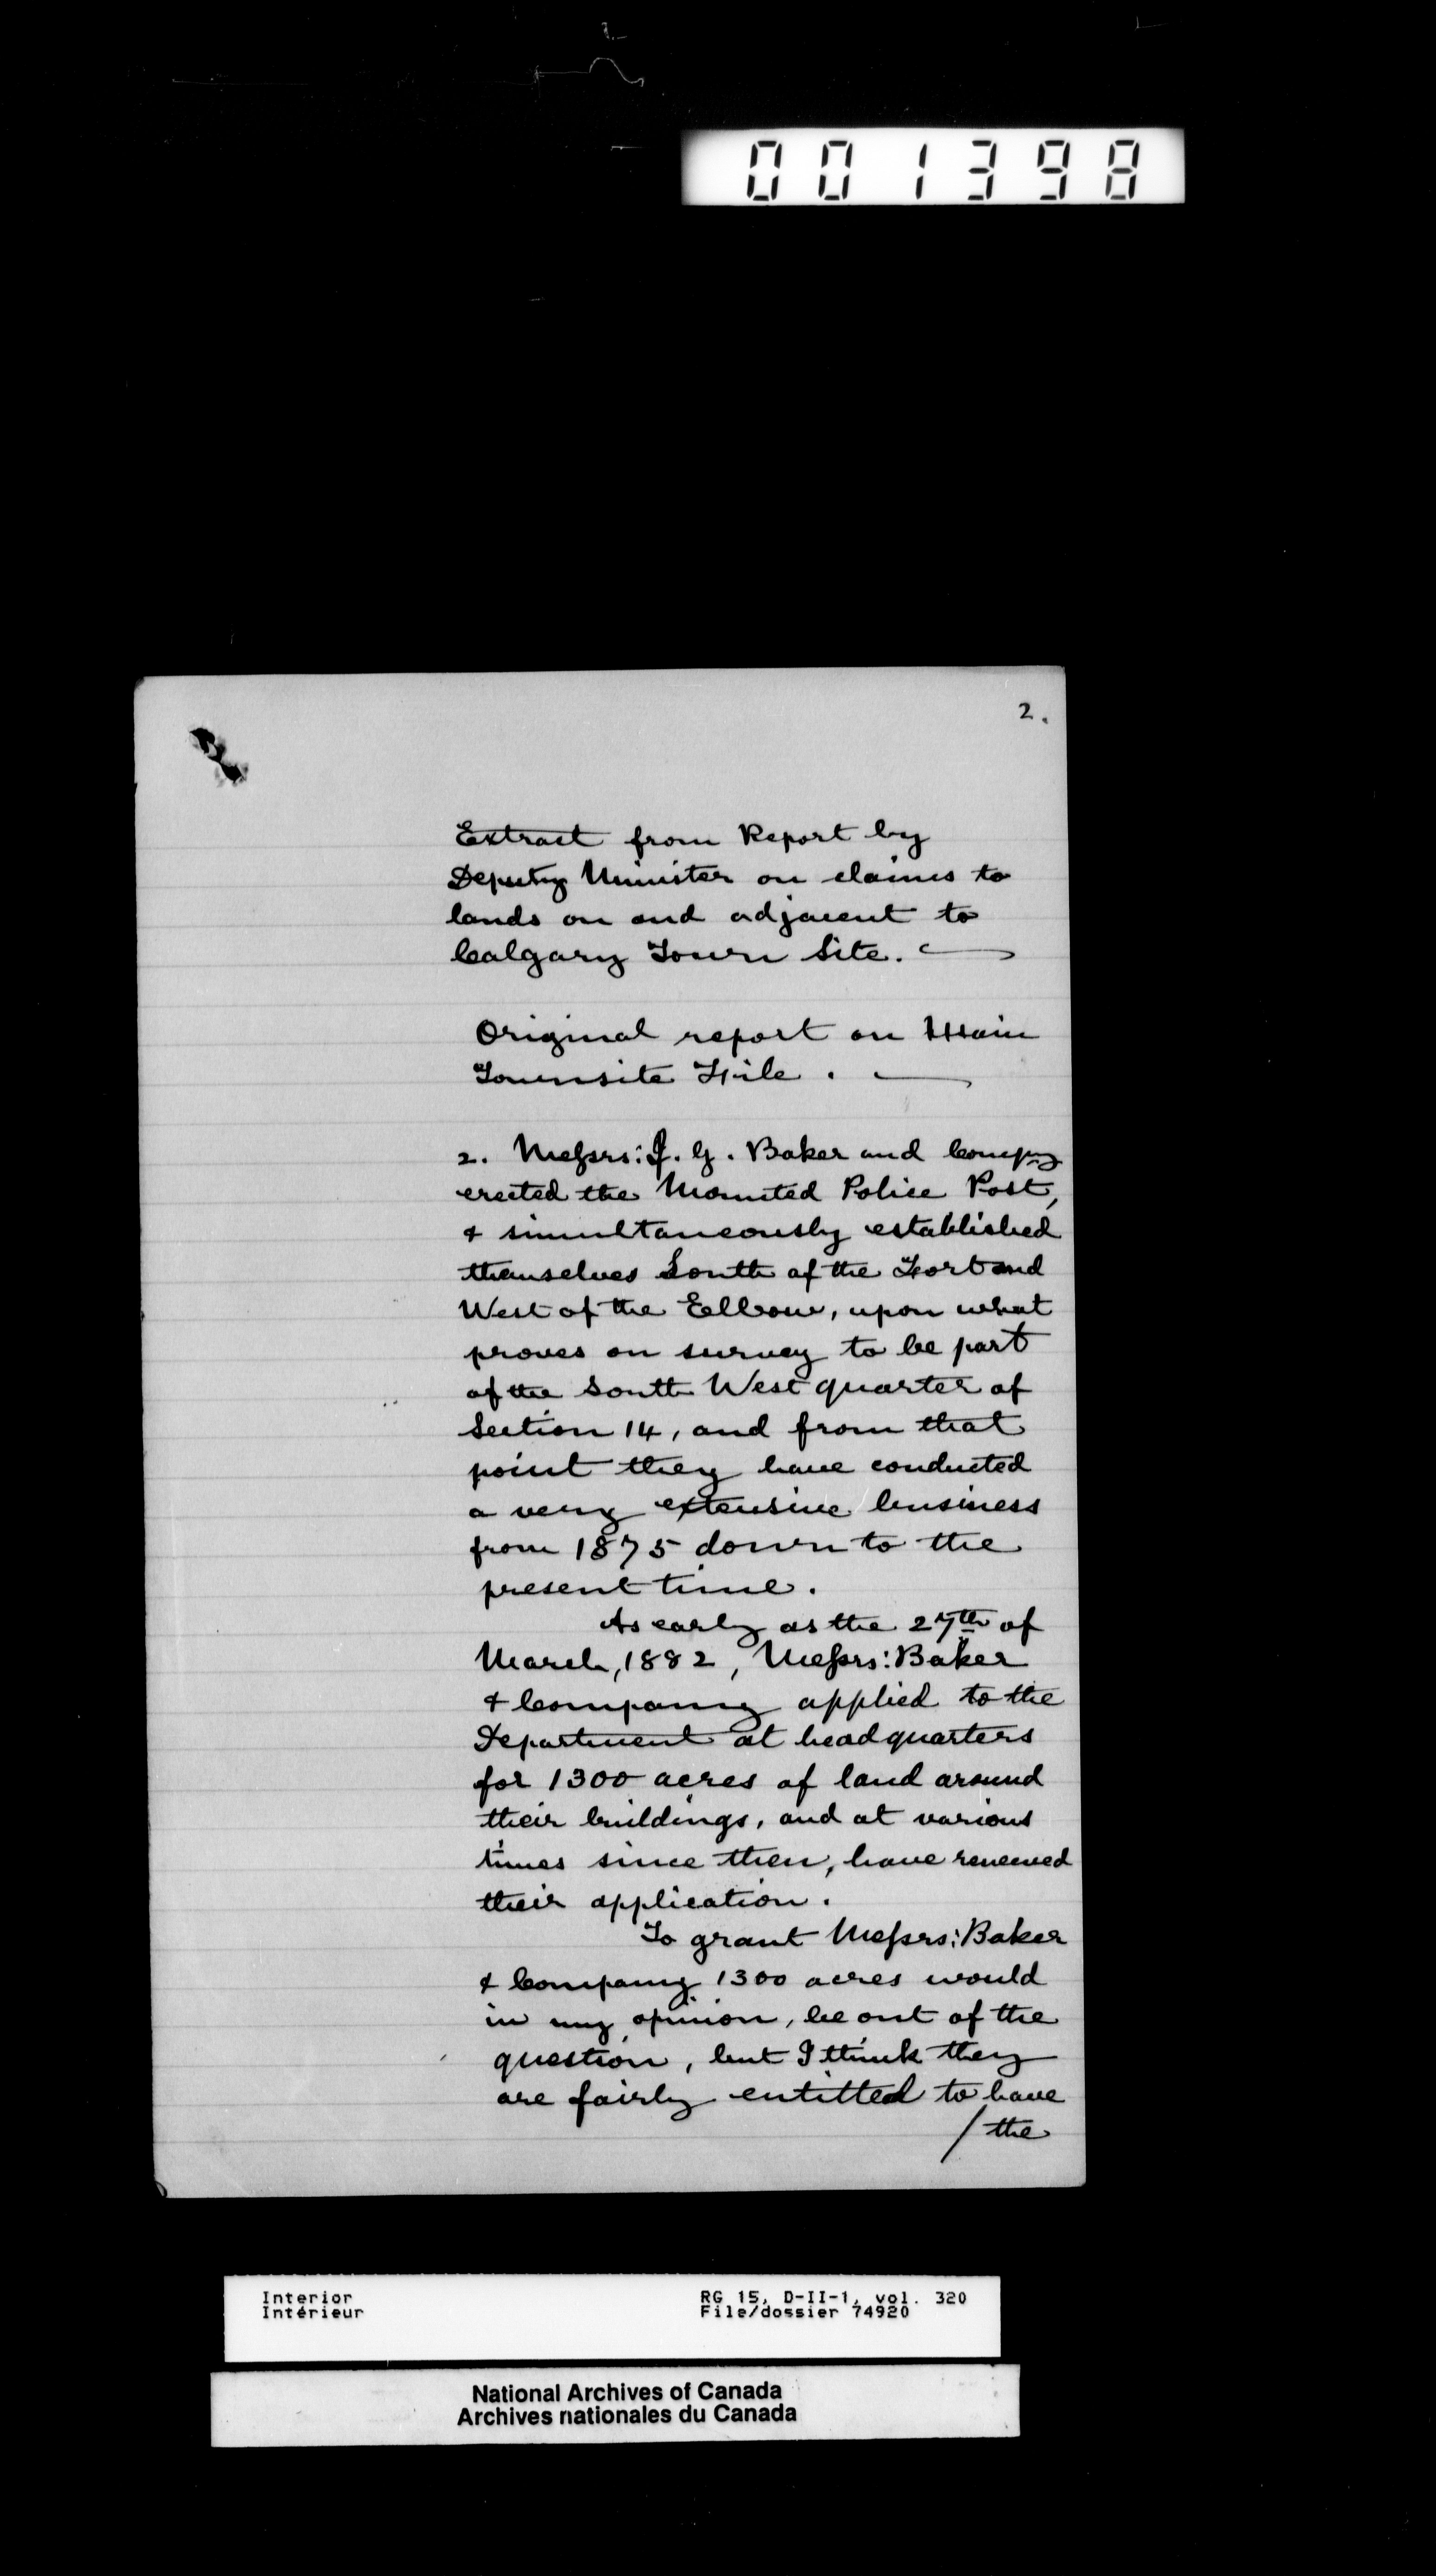 001398
2.
Extract from Report by
Deputy Minister on claims to
lands on and adjacent to
Calgary Town Site.
Original report on Main
Townsite File.
2. Messrs: I. G. Baker and Compy
erected the Mounted Police Post,
& simultaneously established
themselves South of the Fort and
West of the Elbow, upon what
proves on survey to be part
of the South West quarter of
Section 14, and from that
point they have conducted
a very extensive business
from 1875 down to the
present time.
As early as the 27th of
March, 1882, Messrs: Baker
& Company applied to the
Department at headquarters
for 1300 acres of land around
their buildings, and at various
times since then, have renewed
their application.
To grant Messrs: Baker
& Company 1300 acres would
in my opinion, be out of the
question, but I think they
are fairly entitled to have
/ the
Interior RG 15, D-II-1, vol. 320
Intérieur File/dossier 74920
National Archives of Canada
Archives nationales du Canada